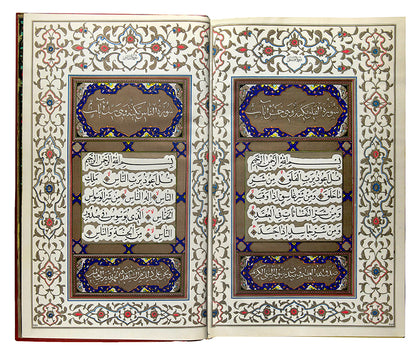 سورة الفلق مكية وهي خمس آيات
بِسْمِ اللَّهِ الرَّحْمَٰنِ الرَّحِيمِ
قُلْ أَعُوذُ بِرَبِّ الْفَلَقِ مِنْ شَرِّ مَا
خَلَقَ وَمِنْ شَرِّ غَاسِقٍ إِذَا وَقَبَ وَ
مِنْ شَرِّ النَّفَّاثَاتِ فِي الْعُقَدِ وَ
مِنْ شَرِّ حَاسِدٍ إِذَا حَسَدَ
صدق الله العلي
سورة الناس مكية وهي ست آيات
بِسْمِ اللَّهِ الرَّحْمَٰنِ الرَّحِيمِ
قُلْ أَعُوذُ بِرَبِّ النَّاسِ مَلِكِ
النَّاسِ إِلَٰهِ النَّاسِ مِنْ شَرِّ الْوَسْوَاسِ
الْخَنَّاسِ الَّذِي يُوَسْوِسُ فِي صُدُورِ
النَّاسِ مِنَ الْجِنَّةِ وَالنَّاسِ